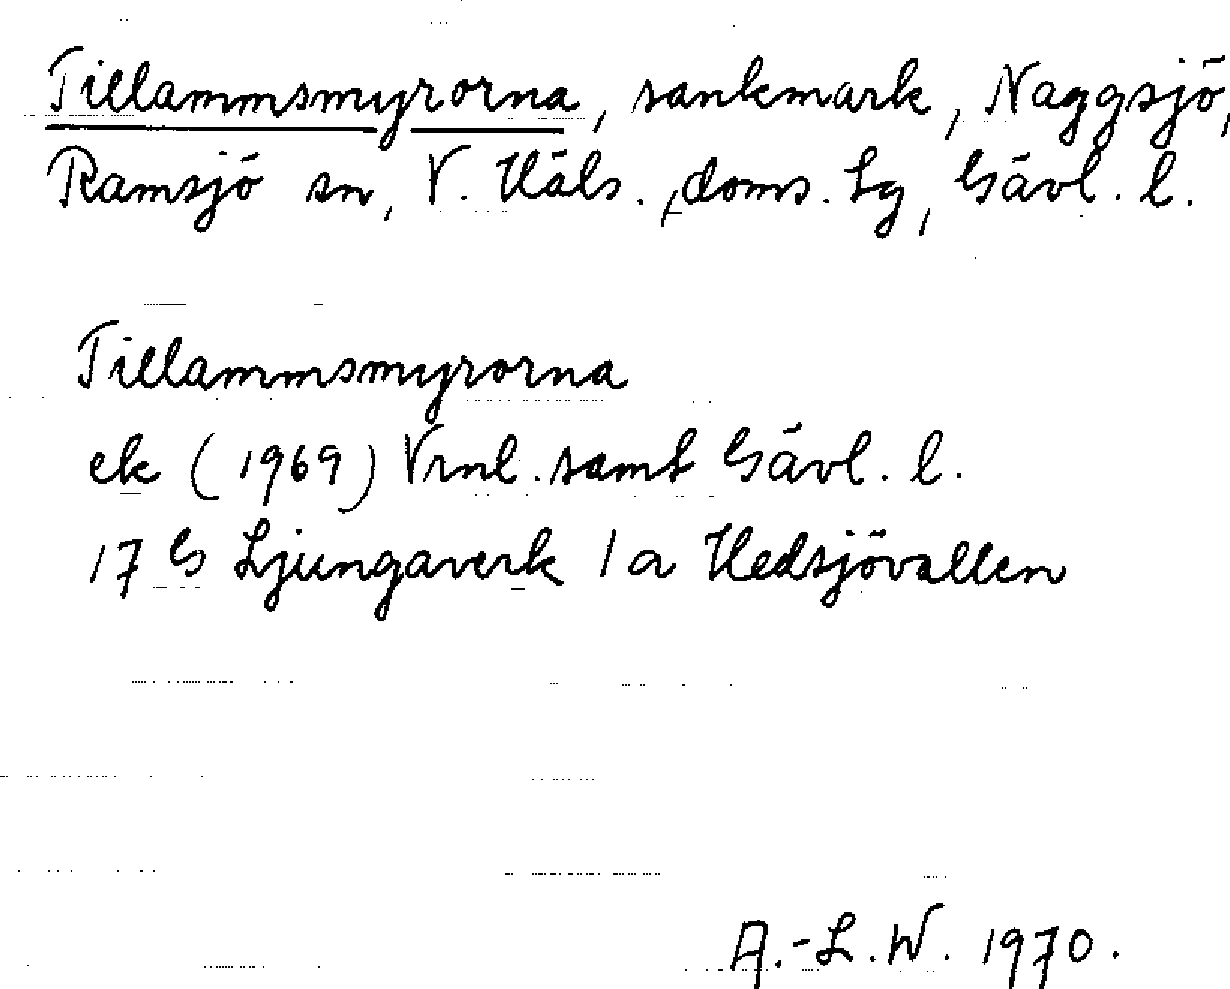 Tillammsmyrorna, sankmark, Naggsjö,
Ramsjö sn, V. Häls., doms. Lg, Gävl. l.
Tillammsmyrorna
ek (1969) Vrnl. samt Gävl. l.
17 G Ljungaverk 1 a Hedsjövallen
A.-L.W. 1970.